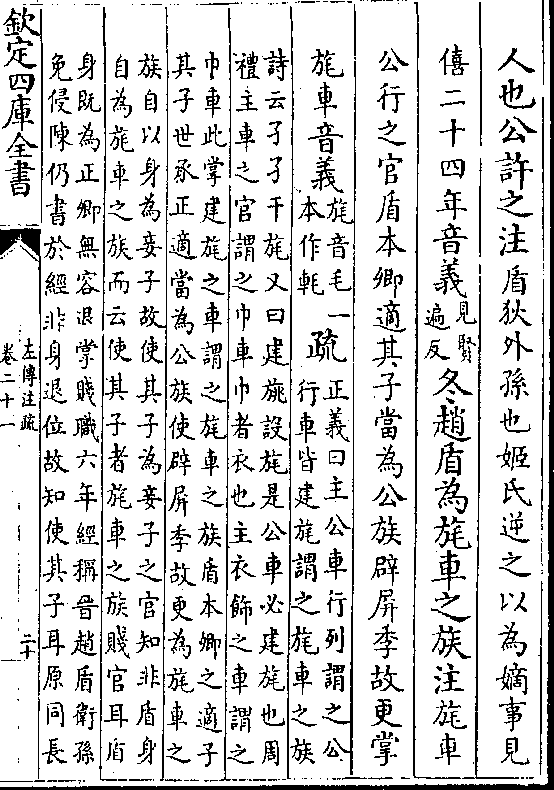 人也公許之注盾狄外孫也姬氏逆之以為嫡事見
僖二十四年音義見賢遍反冬趙盾為旄車之族注旄車
公行之官盾本卿適其子當為公族辟屏季故更掌
旄車音義旄音毛一本作軞疏正義曰主公車行列謂之公行車皆建旄謂之旄車之族
詩云孑孑干旄又曰建旐設旄是公車必建旄也周
禮主車之官謂之巾車巾者衣也主衣飾之車謂之
巾車此掌建旄之車謂之旄車之族盾本卿之適子
其子世承正適當為公族使辟屏季故更為旄車之
族自以身為妾子故使其子為妾子之官知非盾身
自為旄車之族而云使其子者旄車之族賤官耳盾
身既為正卿無容退掌賤職六年經稱晉趙盾衛孫
免侵陳仍書於經非身退位故知使其子耳原同長
欽定四庫全書
左傳注疏
卷二十一
二十